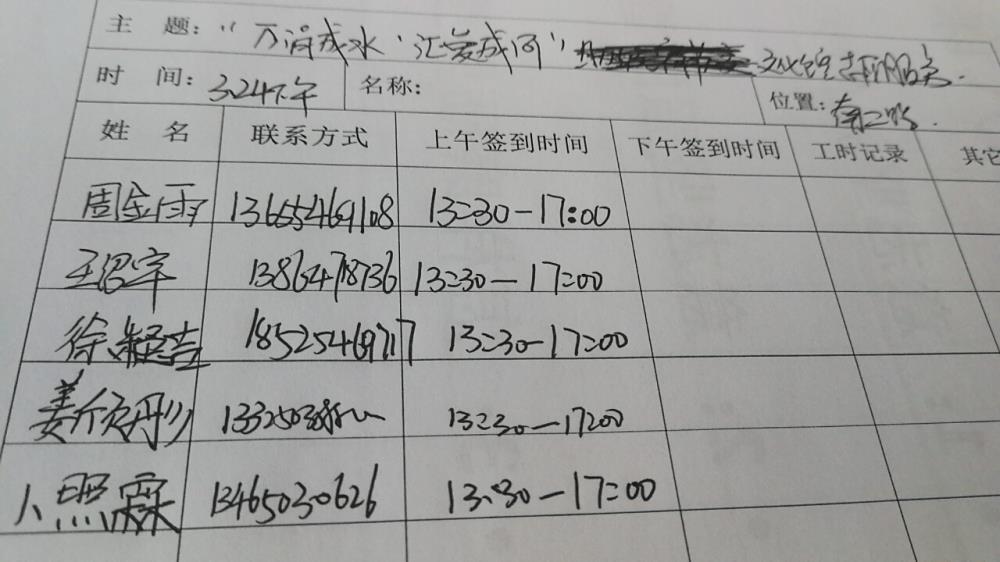 主 题：“万涓成水，汇爱成河”
时 间：3.24下午 名称： 位置：
姓 名 联系方式 上午签到时间 下午签到时间 工时记录 其它
周金雨 13655469108 13:30-17:00
王绍宇 13864718736 13:30-17:00
徐颖吉 18525469717 13:30-17:00
姜欣彤 13:30-17:00
照霖 13465030626 13:30-17:00